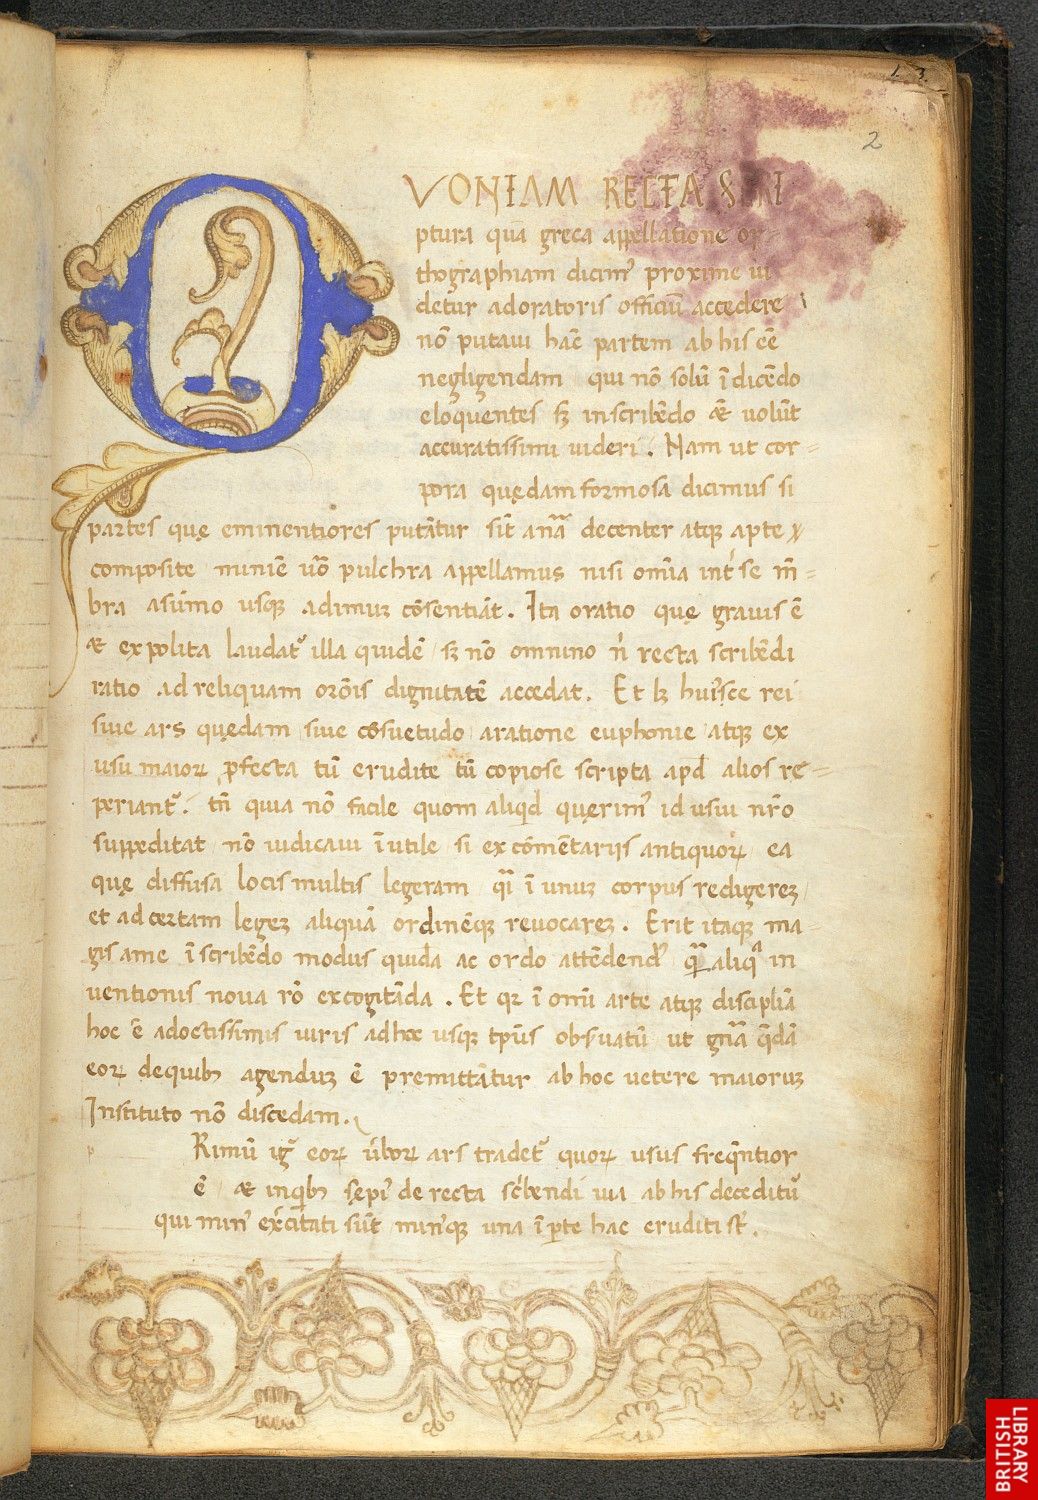 1. 3.
2
QVONIAM RECTA SCRI
ptura quā greca appellatione or-
thographiam dicim᾽ proxime ui
detur ad oratoris officiū accedere
nō putaui hāc partem ab his eē
negligendam / qui nō solū ī dicēdo
eloquentes sꝫ in scribēdo & uolūt
accuratissimi uideri. Nam ut cor=
pora quędam formosa dicimus si
partes quę eminentiores putātur sīt decenter atqꝫ apte
composite minīe uō pulchra appellamus nisi omīa int᾽ se m̄=
bra a sūmo usqꝫ ad imuꝫ cōsentiāt. Ita oratio quę grauis ē
& expolita laudat᾽ illa quidē / sꝫ nō omnino nᷨ recta scribēdi
ratio ad reliquam orōis dignitatē accedat. Et lꝫ huiᷤce rei
siue ars quędam siue cōsuetudo a ratione euphonie atqꝫ ex
usu maioꝝ ꝓfecta tū erudite tū copiose scripta apd̄ alios re=
periant᾽. tn̄ quia nō facile quom aliqd̄ querim᾽ id usui nr̄o
suppeditat / nō iudicaui īutile / si ex cōmētariis antiquoꝝ ea
quę diffusa locis multis legeram qᷓi ī unuꝫ corpus redigereꝫ /
et ad certam legeꝫ aliquā ordinēqꝫ reuocareꝫ. Erit itaqꝫ ma=
gis a me ī scribēdo modus quidā ac ordo attēdend᾽ in
uentionis noua rō excogitāda. Et qꝛ ī omī arte atqꝫ disciplīa
hoc ē a doctissimis uiris ad hoc usqꝫ tp̄us obs᾽uatū ut gn̄a qᷓdā
eoꝝ de quibꝫ agenduꝫ ē premittātur ab hoc uetere maioruꝫ
Instituto nō discedam.
p Rimū ig᷑ eoꝝ ūboꝝ ars tradet᾽ quoꝝ usus freqn̄tior
ē / & in qibꝫ sępi᾽ de recta sc᾽bendi uia ab his deceditū
qui min᾽ ex᾽citati sūt una ī ꝑte hac eruditi st̄.
BRITISH
LIBRARY